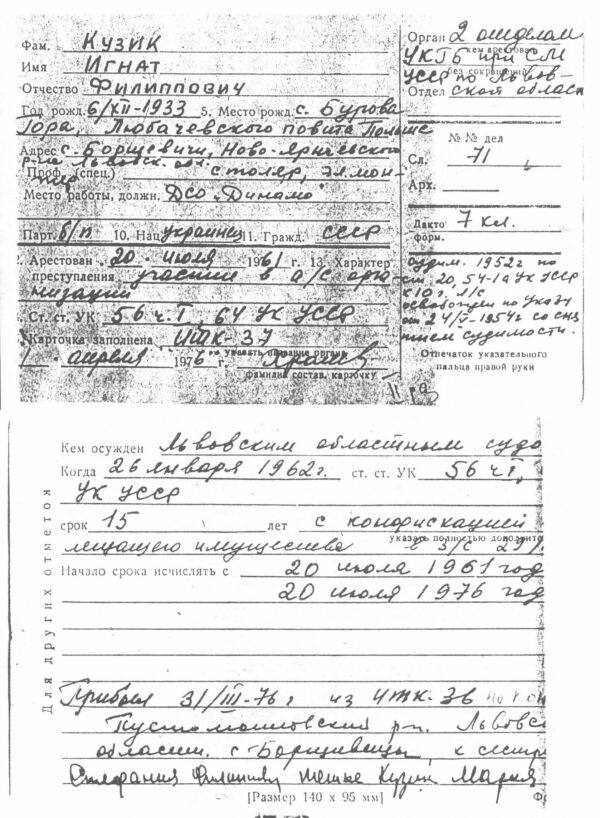 Фам. Кузик
Имя Игнат
Отчество Филиппович
Год рожд. 6/XII-1933 5. Место рожд. с. Бурова
Гора, Любачевского повита Польше
Адрес с. Борщевичи, Ново-Яричевского
р-на Львовск. обл.
Проф. (спец.) столяр, эл. мон-
Место работы, должн. ДСО "Динамо"
Парт. б/п 10. Нац. украинец 11. Гражд. СССР
Арестован 20 июля 1961 г. 13. Характер
преступления участие в а/с орга-
низации
Ст. ст. УК 56 ч. I, 64 УК УССР
Карточка заполнена ИТК-37
указать название органа
1 апреля 1976 г.
фамилия состав. карточку
Орган 2 отделом
кем арестован
УКГБ при СМ
без сокращений
УССР по Львов-
Отдел ской област
№ № дел
Сл. 71
Арх.
Дакто 7 кл.
форм.
судим. 1952 г по
ст. 20, 54-1а УК УССР
к 10 г. л/с
освобожден по Указу
от 24/IV-1954 со сня
тием судимости.
Отпечаток указательного
пальца правой руки
Кем осужден Львовским областным судо
Когда 26 января 1962 г. ст. ст. УК 56 ч I,
УК УССР
срок 15 лет с конфискацией
указать полностью дополнит
имущества
Начало срока исчислять с 20 июля 1961 год
20 июля 1976 год
Для других отметок
Прибыл 31/III-76 г из ИТК-36
Пустомытовский р-н. Львовс
области. с. Борщевичи, к сестре
Стефания Филип Кузик Мария
[Размер 140 х 95 мм]